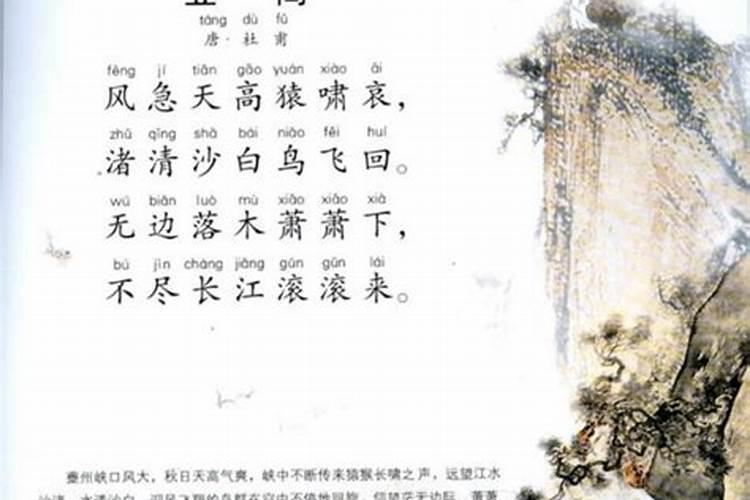 táng dù fǔ
唐·杜甫
fēng jí tiān gāo yuán xiào āi
风急天高猿啸哀，
zhǔ qīng shā bái niǎo fēi huí
渚清沙白鸟飞回。
wú biān luò mù xiāo xiāo xià
无边落木萧萧下，
bú jìn cháng jiāng gǔn gǔn lái
不尽长江滚滚来。
夔州峡口风大，秋日天高气爽，峡中不断传来猿猴长啸之声，远望江水